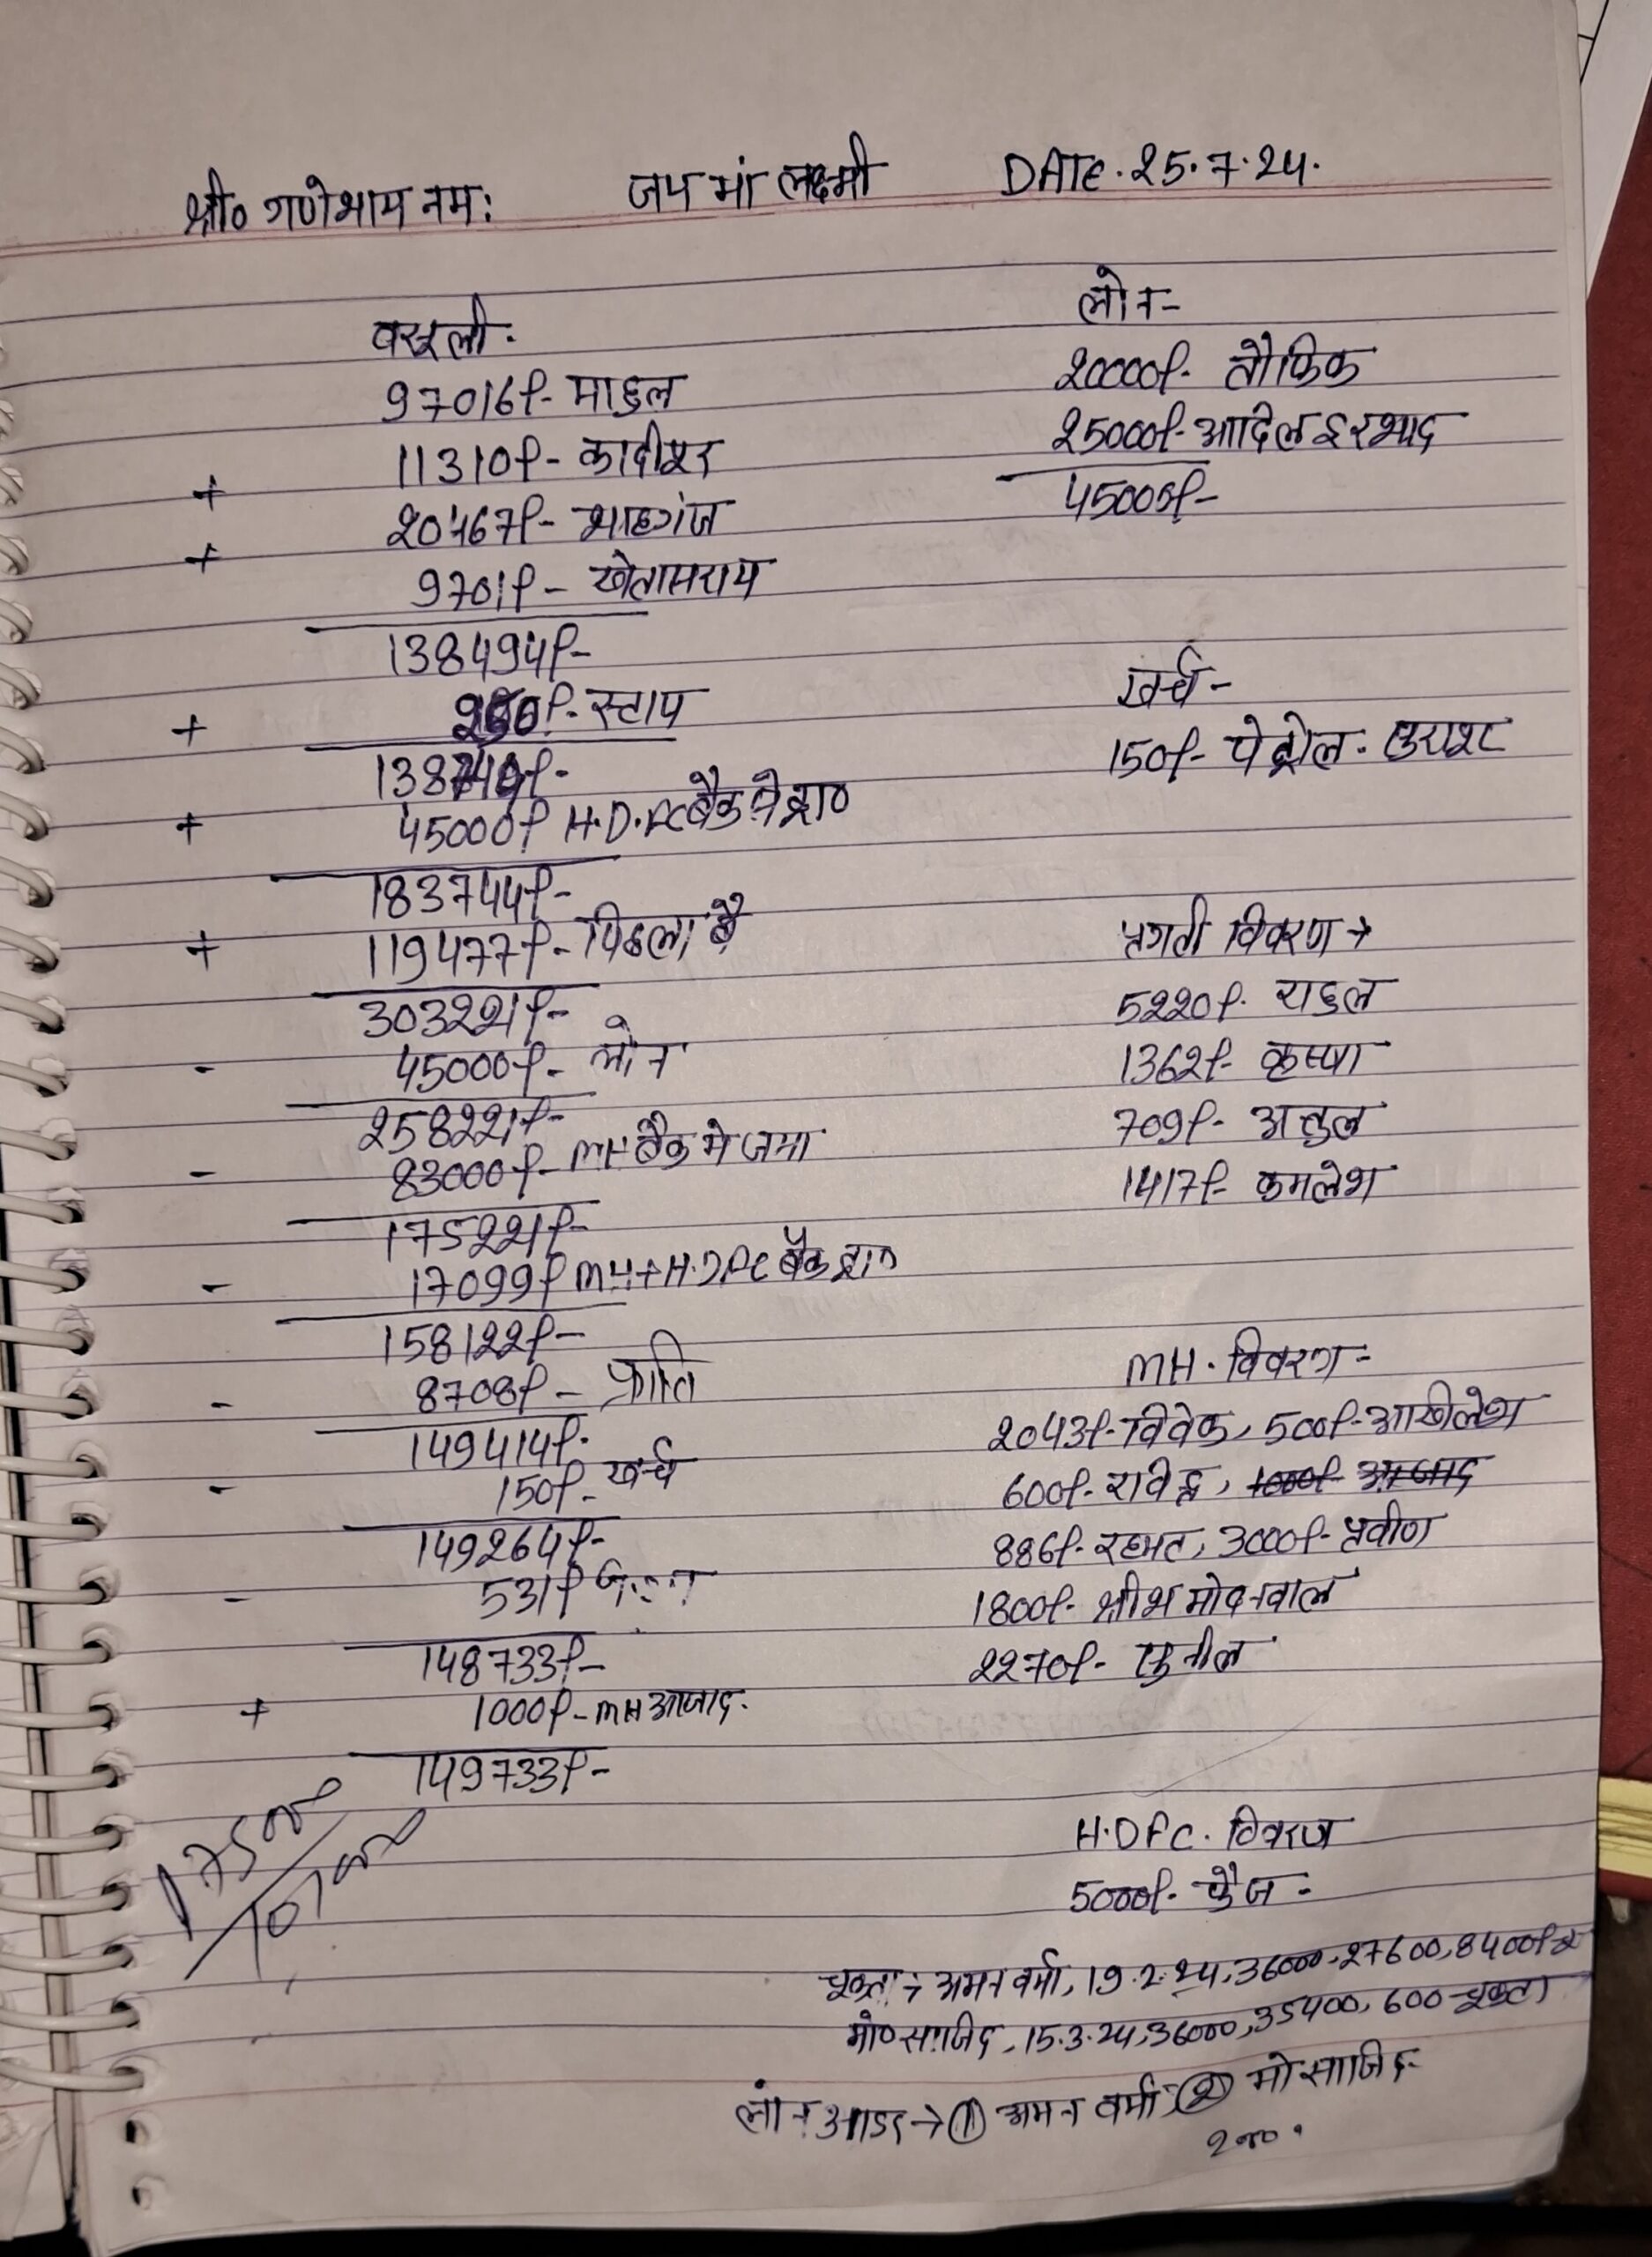 श्री० गणेशाय नमः जय मां लक्ष्मी DATE. 25.7.24.
वसूली.
97016/- माहुल
+ 11310/- कादीपुर
+ 20467/- शाहगंज
9701/- खेतासराय
138494/-
+ 250/- स्टाप
138744/-
+ 45000/- H.D.FC बैंक से ट्रा०
183744/-
+ 119477/- पिछला बै
303221/-
- 45000/- लोन
258221/-
- 83000/- MH बैंक मे जमा
175221/-
- 17099/- MH+H.DFC बैंक ट्रा०
158122/-
- 8708/- प्रगति
149414/-
- 150/- खर्च
149264/-
- 531/-
148733/-
+ 1000/- MH आजाद.
149733/-
लोन-
20000/- तौफिक
25000/- आदिल इरशाद
45000/-
खर्च-
150/- पेट्रोल.
प्रगती विवरण →
5220/- राहुल
1362/- कृष्णा
709/- अतुल
1417/- कमलेश
MH. विवरण-
2043/- विवेक, 500/- आखीलेश
600/- रविन्द्र, 1000/- आजाद
886/- रहमत, 3000/- प्रवीण
1800/- श्रीश मोदनवाल
2270/- सुनील
H.DFC. विवरण
5000/- फैज-
चुकता → अमन वर्मा, 19.2.24, 36000, 27600, 8400/-
मो० साजिद, 15.3.24, 36000, 35400, 600 चुकता
लोन आडर → ① अमन वर्मा, ② मो साजिद